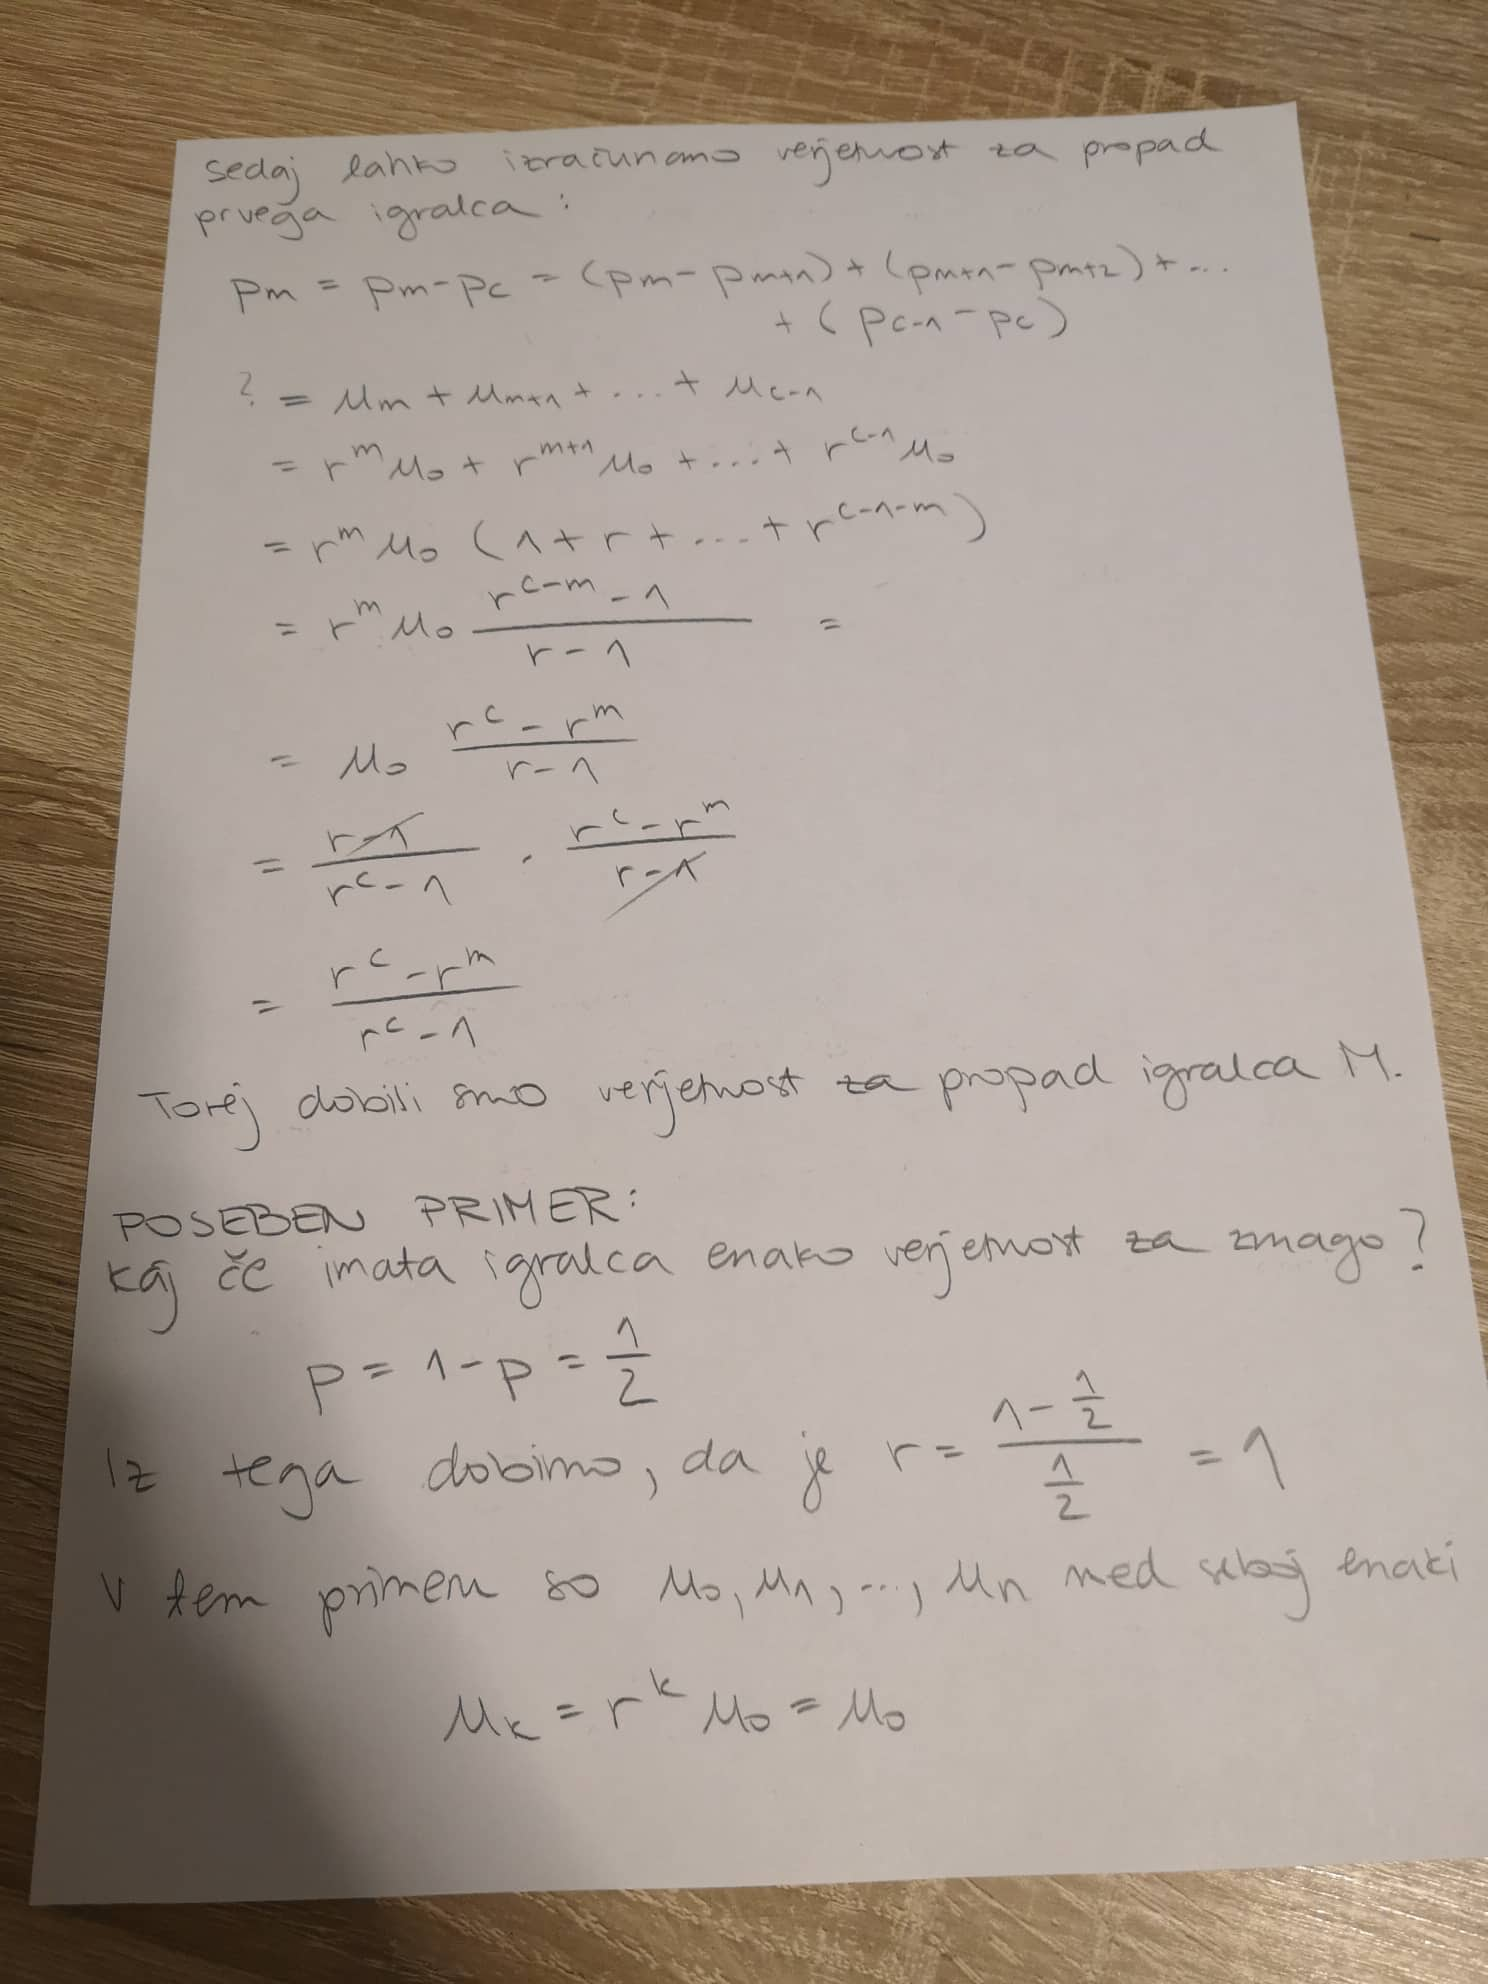 sedaj lahko izračunamo verjetnost za propad
prvega igralca:
pm = pm - pc = (pm - pm+1) + (pm+1 - pm+2) + ...
+ (pc-1 - pc)
? = μm + μm+1 + ... + μc-1
= r^m μ0 + r^(m+1) μ0 + ... + r^(c-1) μ0
= r^m μ0 (1 + r + ... + r^(c-1-m))
= r^m μ0 (r^(c-m) - 1)/(r - 1) =
= μ0 (r^c - r^m)/(r - 1)
= (r - 1)/(r^c - 1) · (r^c - r^m)/(r - 1)
= (r^c - r^m)/(r^c - 1)
Torej dobili smo verjetnost za propad igralca M.
POSEBEN PRIMER:
kaj če imata igralca enako verjetnost za zmago?
p = 1 - p = 1/2
Iz tega dobimo, da je r = (1 - 1/2)/(1/2) = 1
V tem primeru so μ0, μ1, ..., μn med seboj enaki
μk = r^k μ0 = μ0